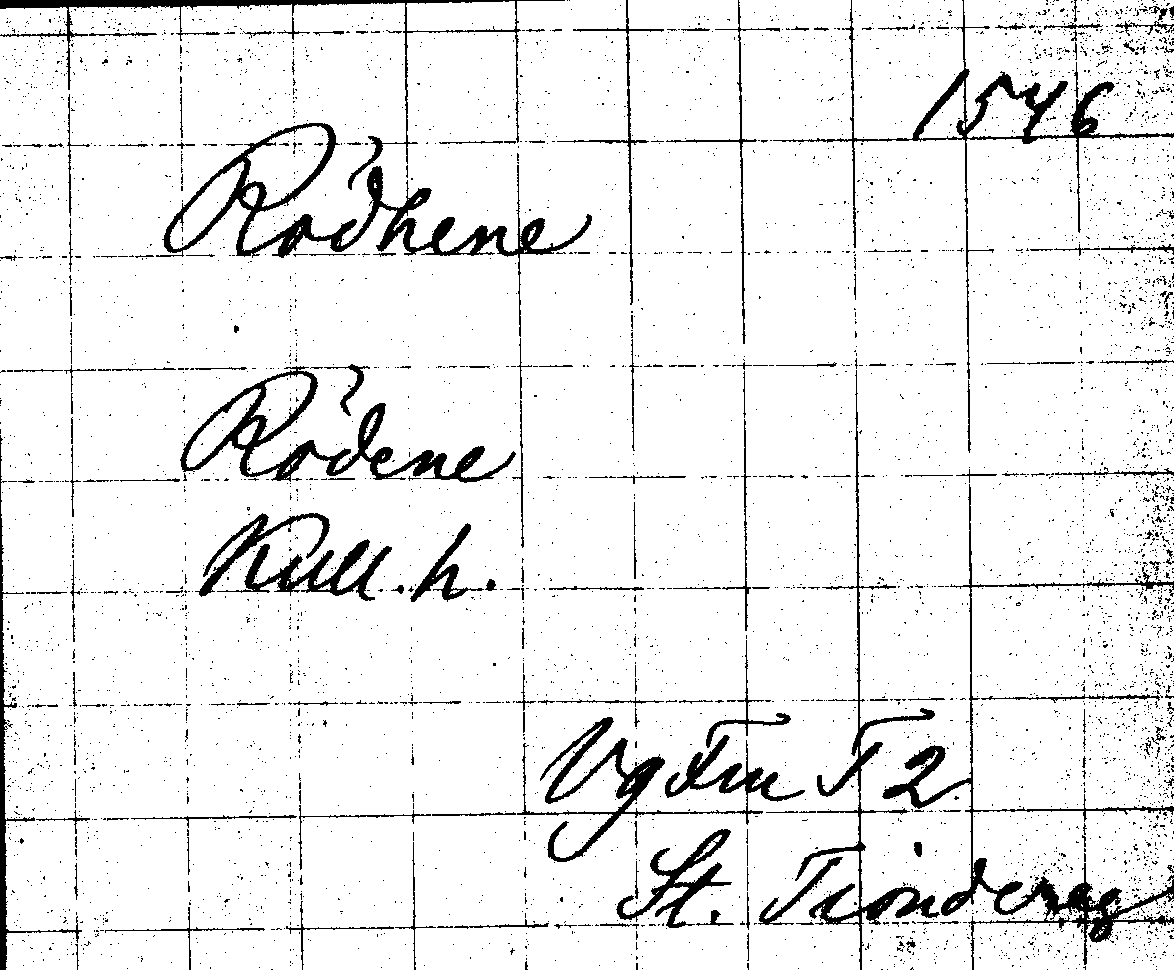 1546
Rödhene
Rödene
Kull. h.
Vg Fru T 2
St. Tiondereg